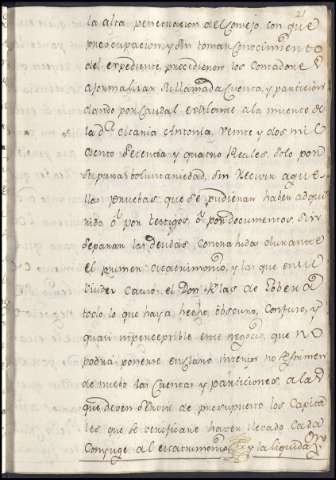 21
la alta penetracion del Consejo con que
preocupacion, y sin tomar conocimiento
del expediente procedieron los Contadores
a formalizar su llamada Cuenta, y particion
dando por caudal existente a la muerte de
la Dª Antonia, veinte y dos mil
ciento setenta y quatro Reales, solo por
su pura voluntariedad, sin recivir aque
llas pruebas, que se pudieran haber adqui
rido ô por testigos, ô por documentos, sin
separar las deudas contrahidas durante
el primer matrimonio, y las que en su
viudez causò el Don Blas de
todo lo que haya hecho obscuro, confuso, y
quasi imperceptible este negocio, que no
podrà ponerse en claro interin no se formen
de nuevo las Cuentas, y particiones, a las
que deven servir de presupuesto los Capita
les que se verificare haver llevado cada
Conjuge al matrimonio, y la liquida